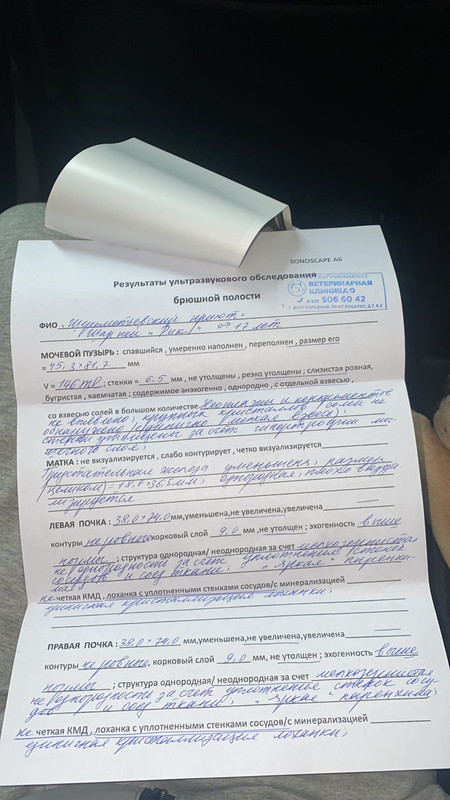 SONOSCAPE A6
Результаты ультразвукового обследования
брюшной полости
ВЕТЕРИНАРНАЯ
КЛИНИКА
506 60 42
ФИО "Шереметьевский приют"
"Рик" 17 лет
МОЧЕВОЙ ПУЗЫРЬ : спавшийся , умеренно наполнен , переполнен , размер его
= 45,3 × 81,7 мм
V = 146 ml ; стенки = 6.5 мм , не утолщены , резко утолщены ; слизистая ровная,
бугристая , каемчатая ; содержимое анэхогенно , однородно , с отдельной взвесью ,
со взвесью солей в большом количестве Неоплазии и конкрементов
не выявлено, крупных кристаллов солей не
обнаружено взвесь),
стенки утолщены за счет гипертрофии мы-
шечного слоя,
МАТКА : не визуализируется , слабо контурирует , четко визуализируется
Предстательная железа уменьшена, размер
(целиком) = 18,8 × 36,5 мм, однородная, плохо визуа
лизируется
ЛЕВАЯ ПОЧКА : 38,0 × 74,0 мм,уменьшена,не увеличена,увеличена
контуры не ровные, корковый слой 9,0 мм ,не утолщен ; эхогенность выше
нормы ; структура однородная/ неоднородная за счет мелкозернистая
неоднородность за счет уплотнения стенок
сосудов и соед ткани, "яркая" паренхи-
ма)
не четкая КМД , лоханка с уплотненными стенками сосудов/с минерализацией
единичная кристаллизация лоханки,
ПРАВАЯ ПОЧКА : 38,0 × 74,0 мм,уменьшена,не увеличена,увеличена
контуры не ровные, корковый слой 9,0 мм, не утолщен ; эхогенность выше
нормы ; структура однородная/ неоднородная за счет мелкозернистая
неоднородность за счет уплотнения стенок сосу-
дов и соед ткани, "яркая" паренхима)
не четкая КМД , лоханка с уплотненными стенками сосудов/с минерализацией
единичная кристаллизация лоханки,